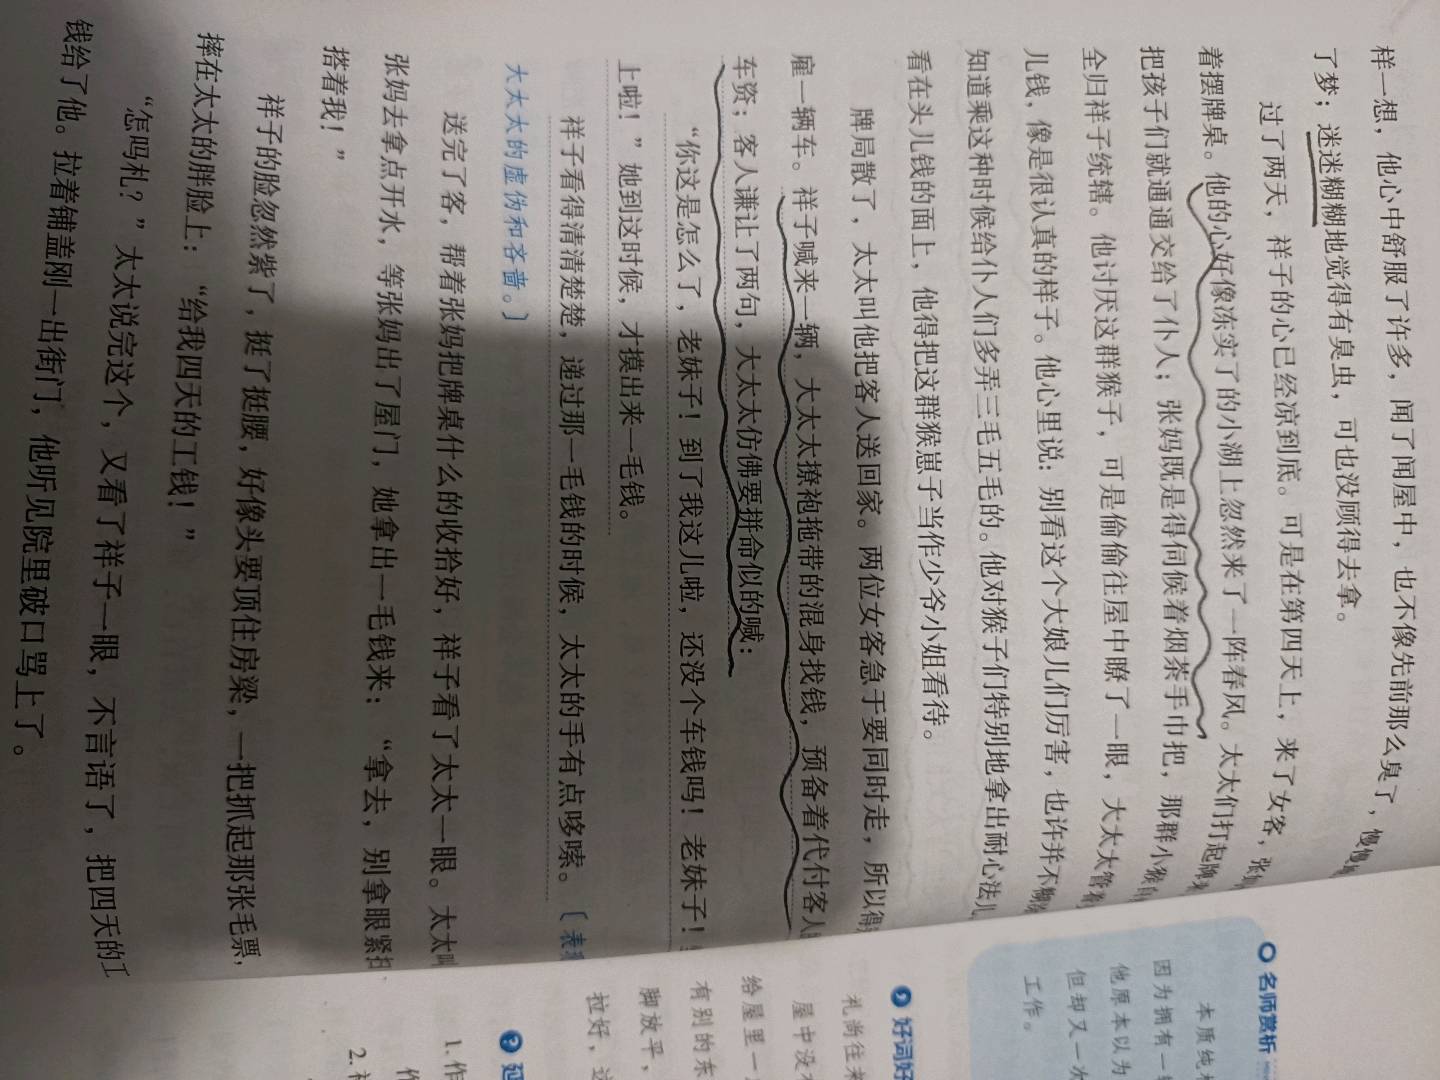 样一想，他心中舒服了许多，闻了闻屋中，也不像先前那么臭了，慢慢
了梦；迷迷糊糊地觉得有臭虫，可也没顾得去拿。
过了两天，祥子的心已经凉到底。可是在第四天上，来了女客，张
着摆牌桌。他的心好像冻实了的小湖上忽然来了一阵春风。太太们打起牌来
把孩子们就通通交给了仆人；张妈既是得伺候着烟茶手巾把，那群小猴自
全归祥子统辖。他讨厌这群猴子，可是偷偷往屋中瞭了一眼，大太太管着
儿钱，像是很认真的样子。他心里说：别看这个大娘儿们厉害，也许并不糊涂
知道乘这种时候给仆人们多弄三毛五毛的。他对猴子们特别地拿出耐心法儿
看在头儿钱的面上，他得把这群猴崽子当作少爷小姐看待。
牌局散了，太太叫他把客人送回家。两位女客急于要同时走，所以得
雇一辆车。祥子喊来一辆，大太太撩袍拖带的混身找钱，预备着代付客人
车资；客人谦让了两句，大太太仿佛要拼命似的喊：
“你这是怎么了，老妹子！到了我这儿啦，还没个车钱吗！老妹子！
上啦！”她到这时候，才摸出来一毛钱。
祥子看得清清楚楚，递过那一毛钱的时候，太太的手有点哆嗦。〔表现
大太太的虚伪和吝啬。〕
送完了客，帮着张妈把牌桌什么的收拾好，祥子看了太太一眼。太太叫
张妈去拿点开水，等张妈出了屋门，她拿出一毛钱来：“拿去，别拿眼紧扫
搭着我！”
祥子的脸忽然紫了，挺了挺腰，好像头要顶住房梁，一把抓起那张毛票，
摔在太太的胖脸上：“给我四天的工钱！”
“怎吗札？”太太说完这个，又看了祥子一眼，不言语了，把四天的工
钱给了他。拉着铺盖刚一出街门，他听见院里破口骂上了。
名师赏析
本质纯
因为拥有一
他原本以为
但却又一次
工作。
好词好
礼尚往来
屋中没
给屋里一
有别的东
脚放平，
拉好，这
延
1.作
作
2.祥